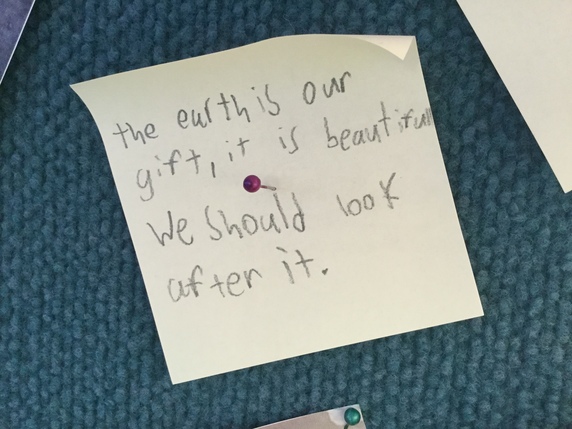 the earth is our
gift, it is beautiful
We should look
after it.